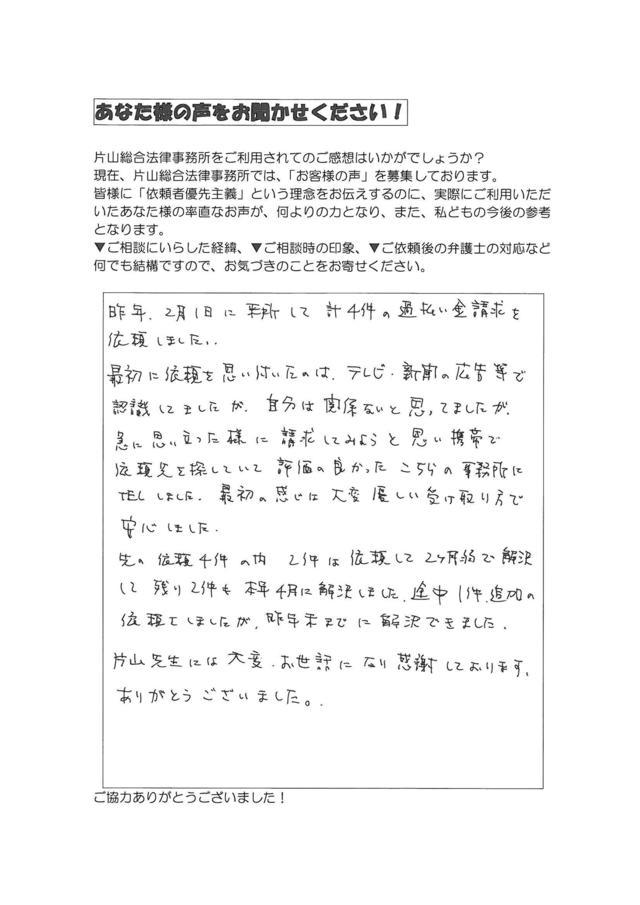 あなた様の声をお聞かせください！
片山総合法律事務所をご利用されてのご感想はいかがでしょうか？
現在、片山総合法律事務所では、「お客様の声」を募集しております。
皆様に「依頼者優先主義」という理念をお伝えするのに、実際にご利用いただ
いたあなた様の率直なお声が、何よりの力となり、また、私どもの今後の参考
となります。
▼ご相談にいらした経緯、▼ご相談時の印象、▼ご依頼後の弁護士の対応など
何でも結構ですので、お気づきのことをお寄せください。
昨年、2月1日に来所して計4件の過払い金請求を
依頼しました。
最初に依頼を思い付いたのは、テレビ・新聞の広告等で
認識してましたが、自分は関係ないと思ってましたが、
急に思い立った様に請求してみようと思い携帯で
依頼先を探していて評価の良かったこちらの事務所に
TELしました。最初の感じは大変優しい受け取り方で
安心しました。
先の依頼4件の内2件は依頼して2ヶ月弱で解決
して残り2件も本年4月に解決しました。途中1件、追加の
依頼もしましたが、昨年末までに解決できました。
片山先生には大変、お世話になり感謝しております。
ありがとうございました。
ご協力ありがとうございました！